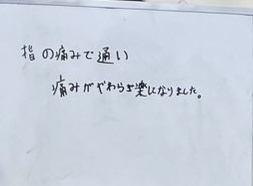 指の痛みで通い
痛みがやわらぎ楽になりました。